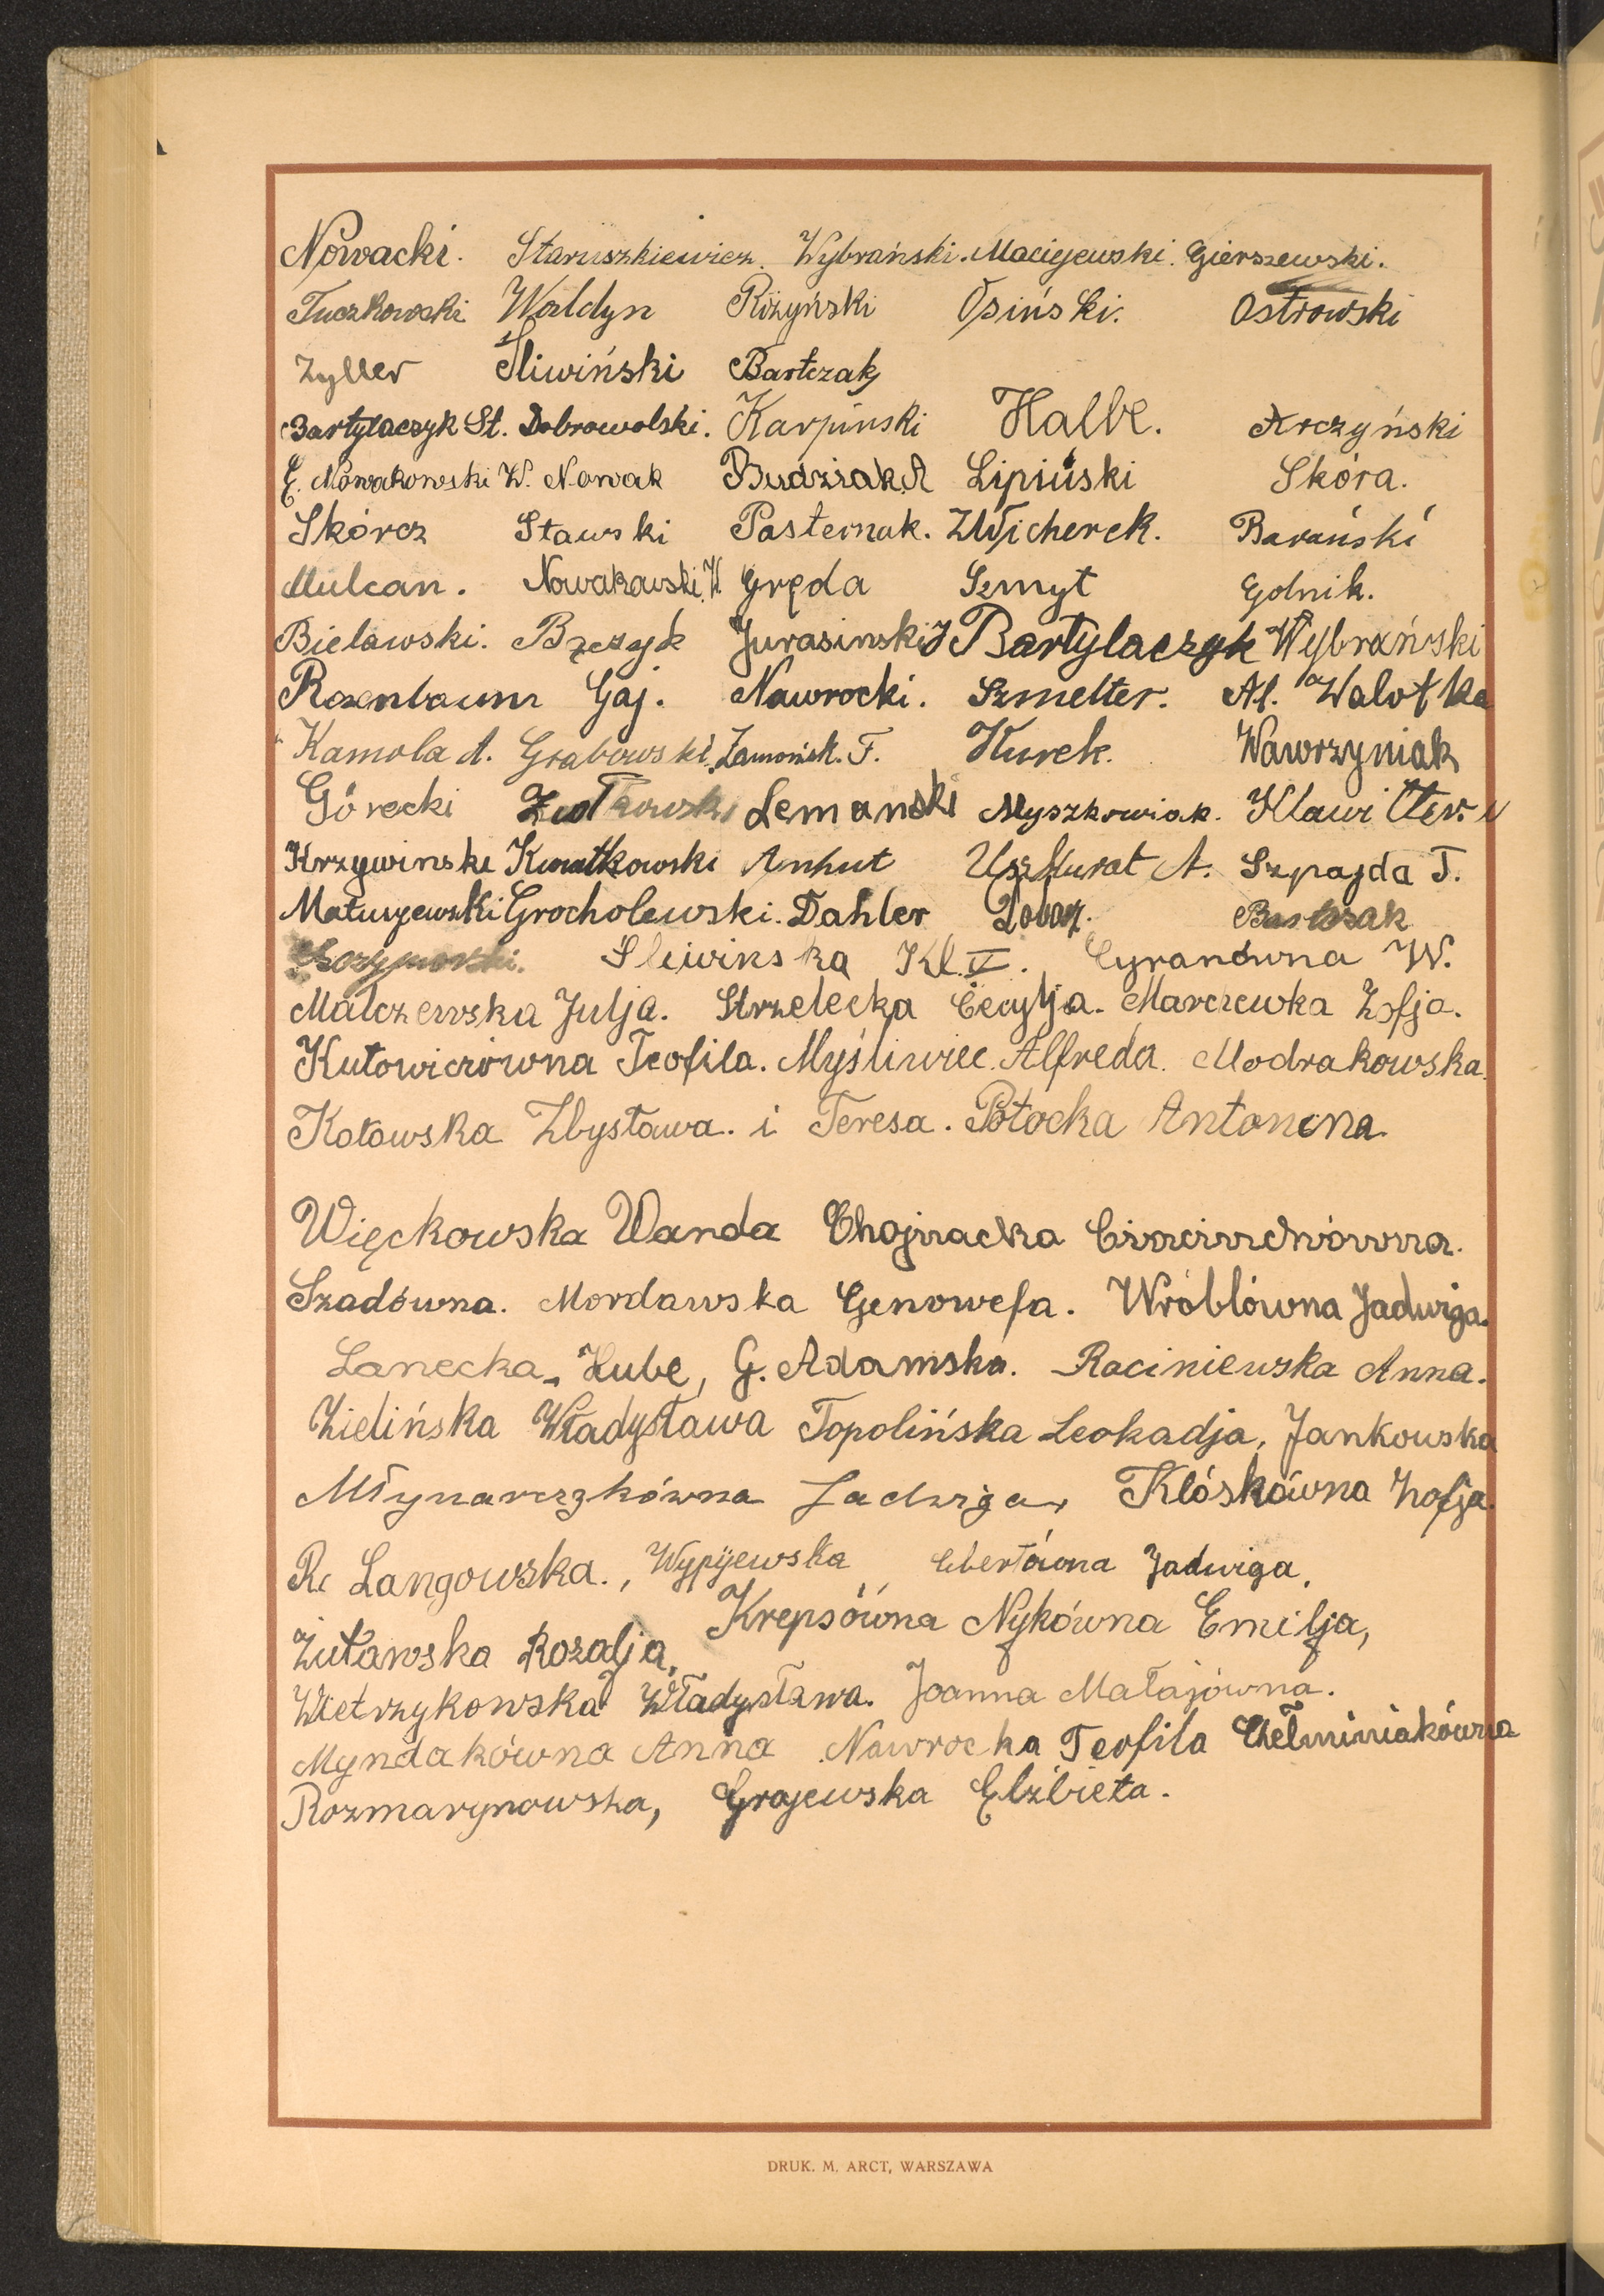 Nowacki. Staruszkiewicz. Wybrański. Maciejewski. Gierszewski.
Tuczkowski Woldyn Różyński Osiński. Ostrowski
Zyller Śliwiński Bartczak
Bartylaczyk St. Dobrowolski. Karpinski Halbe. Arczyński
E. Nowakowski W. Nowak Budziak A Lipiński Skóra.
Skórcz Stawski Pasternak. Z Wicherek. Barański
Mulcan. Nowakowski W Gręda Szmyt Golnik.
Bielawski. Bzczyk Jurasinski J Bartylaczyk Wybrański
Rozenbaum Gaj. Nawrocki. Szmelter. Al. Walotka
Kamola A. Grabowski, F. Kurek. Wawrzyniak
Górecki Lemanski Myszkowiak. Klawitter.
Krzywinski Kwiatkowski Anhut Murat A. Szpajda T.
Matuszewski Grocholewski. Dahler Bartczak
Sliwinska Kl. V. Cyranówna W.
Malczewska Julja. Strzelecka Cecylja. Marczewka Zofja.
Kutowiczówna Teofila. Myśliwiec Alfreda. Modrakowska.
Kotowska Zbysława. i Teresa. Potocka Antonina.
Więckowska Wanda Chojnacka
Szadówna. Mordawska Genowefa. Wróblówna Jadwiga.
Lanecka, Kube, G. Adamska. Raciniewska Anna.
Zielińska Władysława Topolińska Leokadja, Jankowska
Młynarczykówna Jadwiga, Klóskówna Zofja.
R. Langowska., Wypijewska Ebertówna Jadwiga,
Żuławska Rozalja, Krepsówna Nykówna Emilja,
Wietrzykowska Władysława. Joanna Małajówna.
Myndakówna Anna Nawrocka Teofila Chełminiakówna
Rozmarynowska, Grajewska Elżbieta.
DRUK. M. ARCT, WARSZAWA